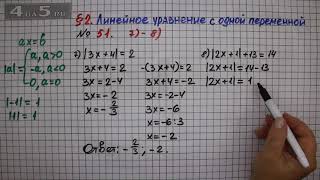 4 на 5.ru
§2. Линейное уравнение с одной переменной
№ 51. 7)-8)
ax=b
|a|= { a, a>0
-a, a<0
0, a=0
|-1|=1
|1|=1
7) |3x+4|=2
3x+4=2 -(3x+4)=2
3x=2-4 3x+4=-2
3x=-2 3x=-2-4
x=-2/3 3x=-6
x=-6:3
x=-2
Ответ: -2/3; -2.
8) |2x+1|+13=14
|2x+1|=14-13
|2x+1|=1